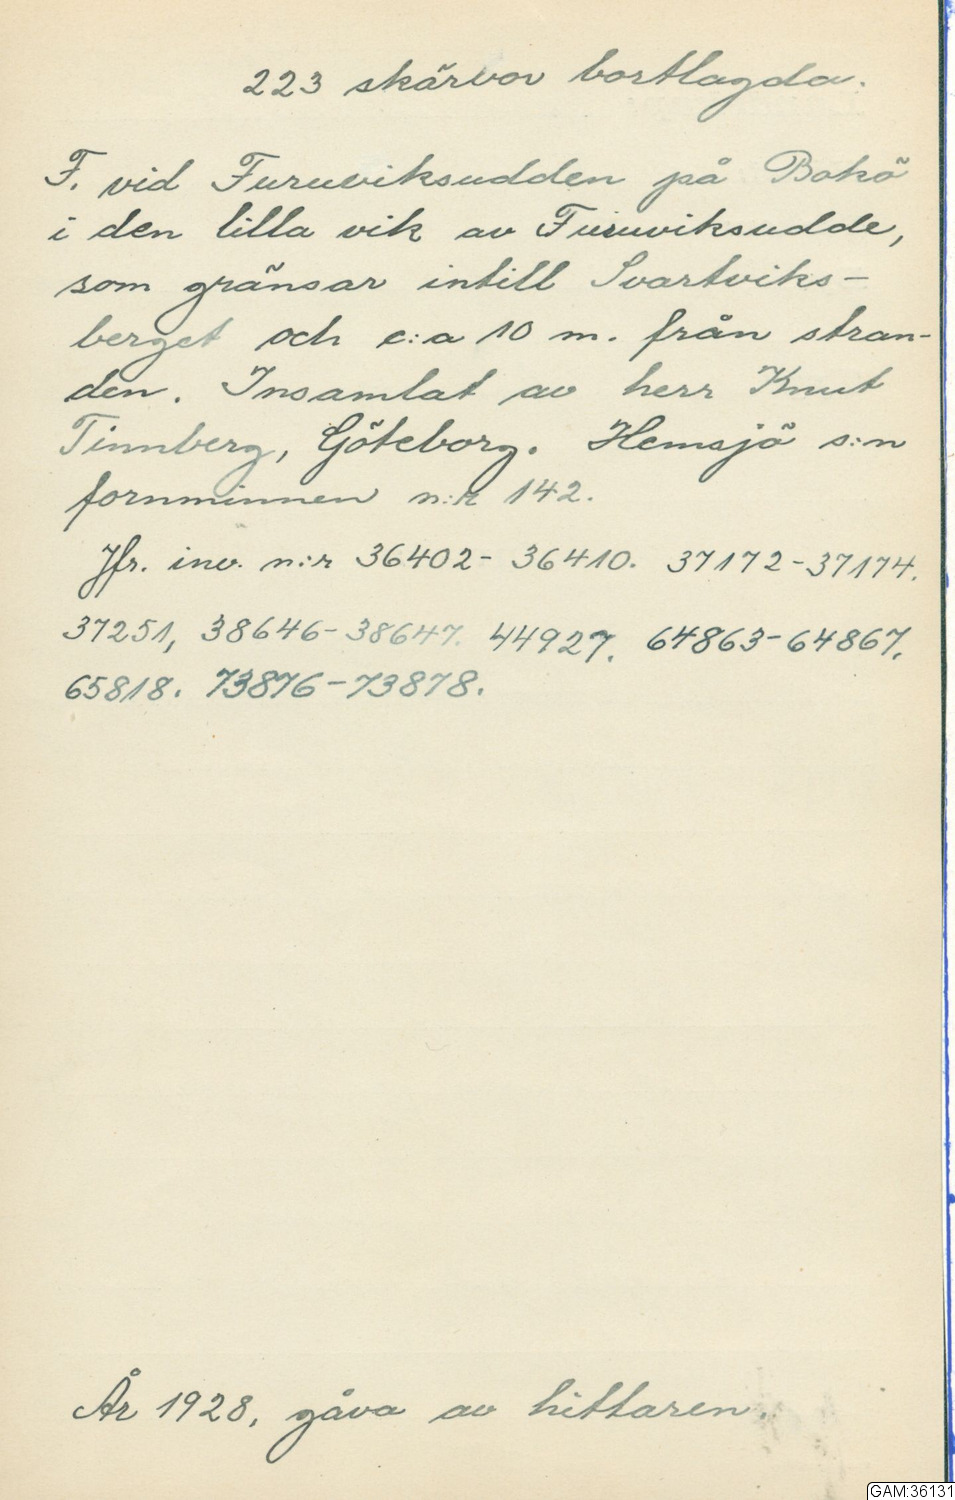 223 skärvor bortlagda.
F. vid Furuviksudden på Bokö
i den lilla vik av Furuviksudde,
som gränsar intill Svartviks-
berget och c:a 10 m. från stran-
den. Insamlat av herr Knut
Tinnberg, Göteborg. Hemsjö s:n
fornminnen n:r 142.
Jfr. inv. n:r 36402-36410. 37172-37174.
37251, 38646-38647. 44927. 64863-64867.
65818. 73876-73878.
År 1928, gåva av hittaren.
GAM:36131